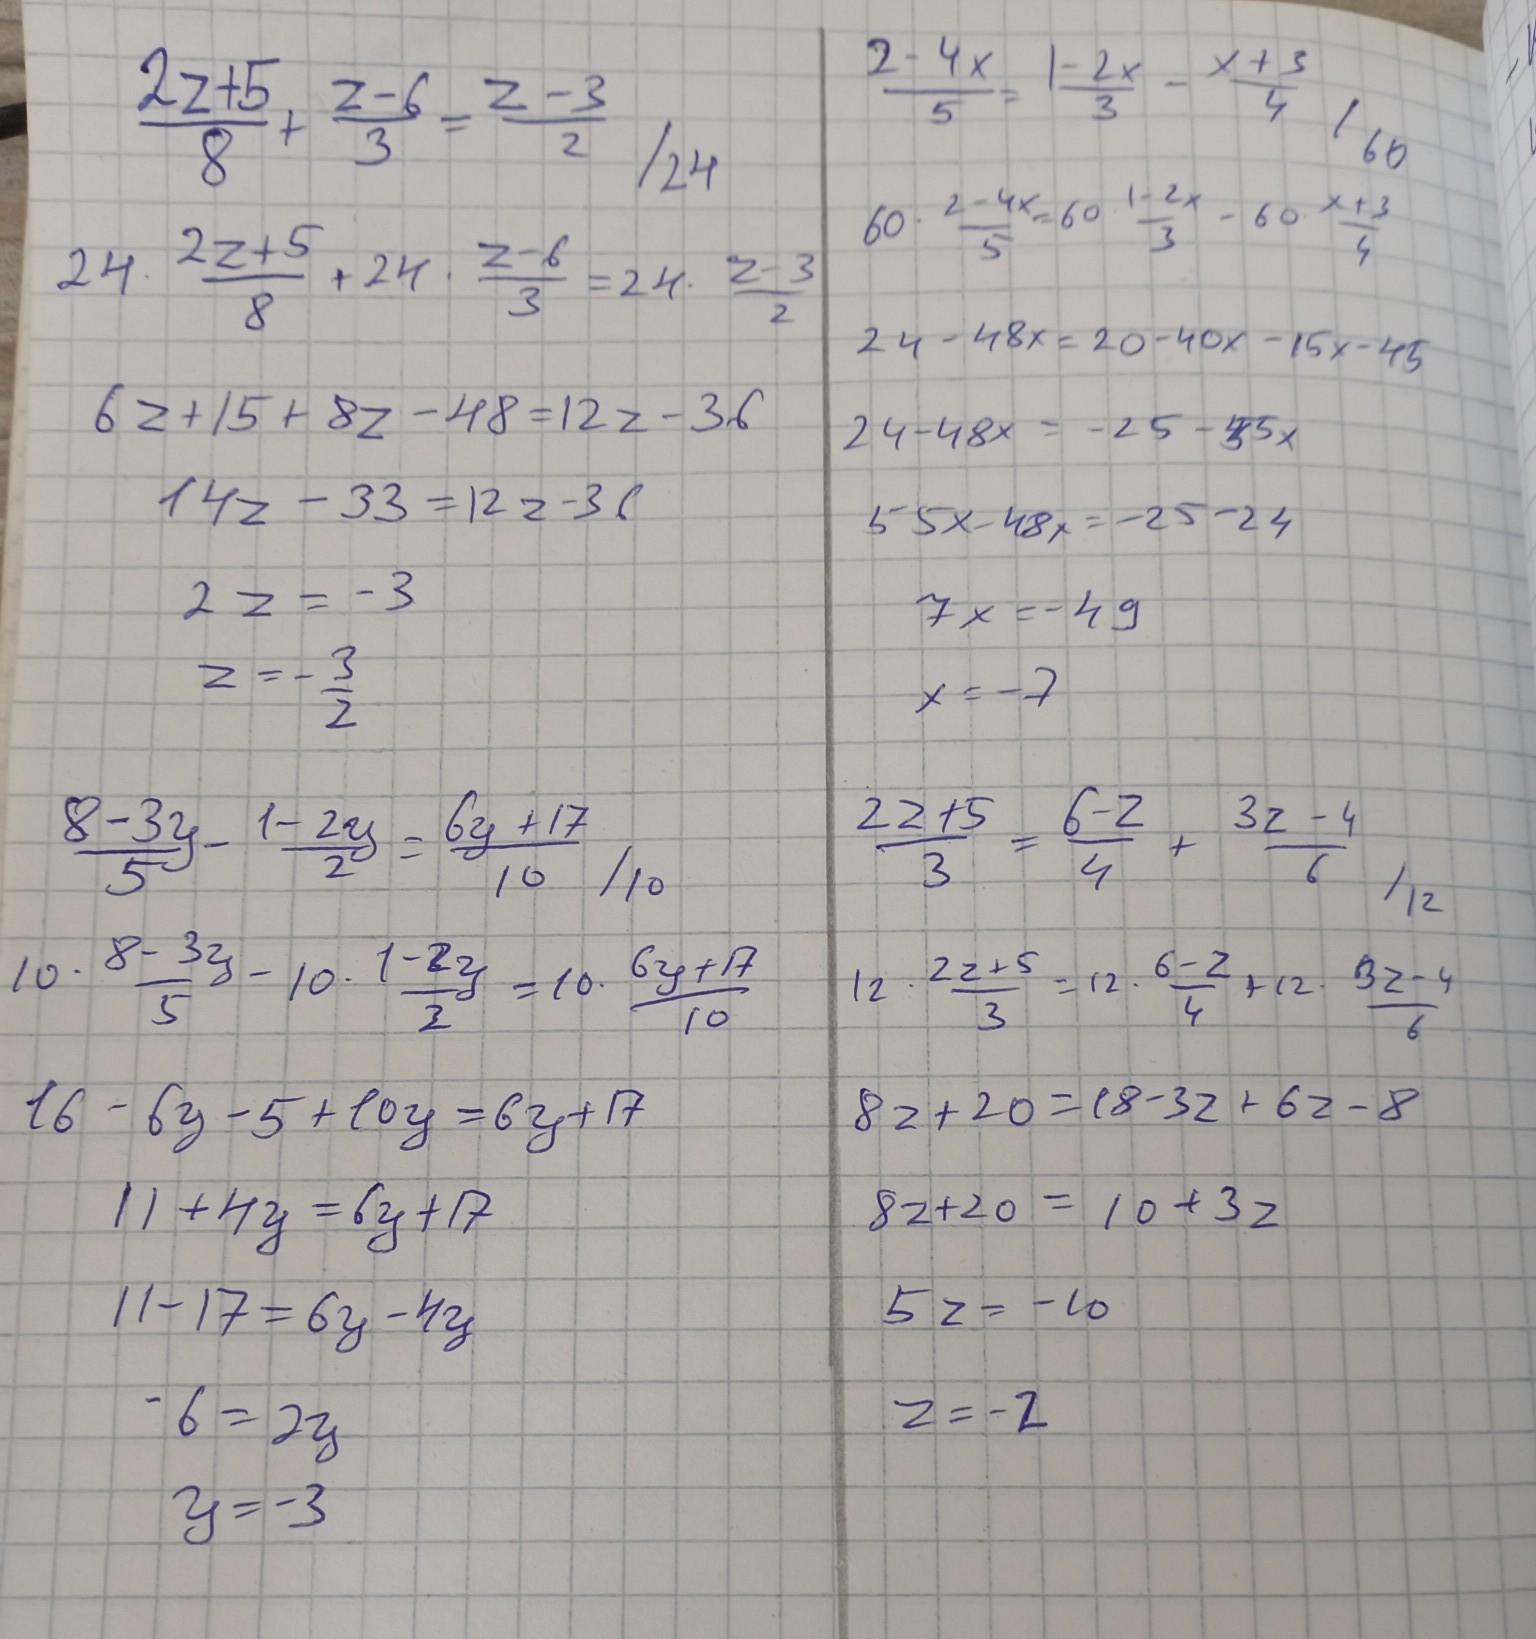 (2z+5)/8 + (z-6)/3 = (z-3)/2 /24
24 · (2z+5)/8 + 24 · (z-6)/3 = 24 · (z-3)/2
6z+15+8z-48=12z-36
14z-33=12z-36
2z=-3
z=-3/2
(8-3y)/5 - (1-2y)/2 = (6y+17)/10 /10
10 · (8-3y)/5 - 10 · (1-2y)/2 = 10 · (6y+17)/10
16-6y-5+10y=6y+17
11+4y=6y+17
11-17=6y-4y
-6=2y
y=-3
(2-4x)/5 = (1-2x)/3 - (x+3)/4 /60
60 · (2-4x)/5 = 60 · (1-2x)/3 - 60 · (x+3)/4
24-48x=20-40x-15x-45
24-48x=-25-55x
55x-48x=-25-24
7x=-49
x=-7
(2z+5)/3 = (6-z)/4 + (3z-4)/6 /12
12 · (2z+5)/3 = 12 · (6-z)/4 + 12 · (3z-4)/6
8z+20=18-3z+6z-8
8z+20=10+3z
5z=-10
z=-2